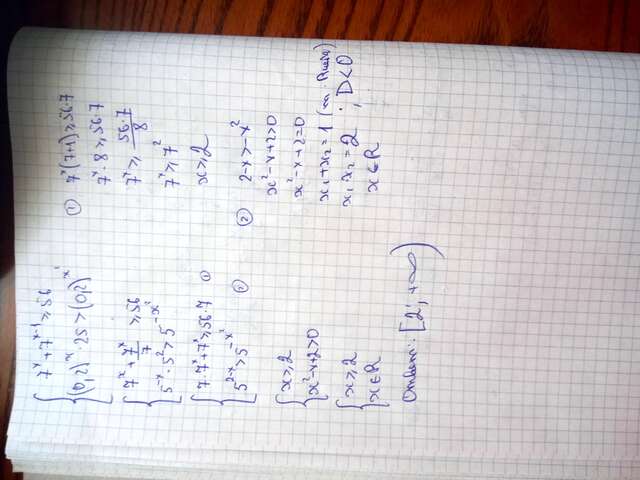 { 7ˣ + 7ˣ⁻¹ ≥ 56
(0,2)ˣ · 25 > (0,2)ˣ²
{ 7ˣ + 7ˣ/7 ≥ 56
5⁻ˣ · 5² > 5⁻ˣ²
{ 7·7ˣ + 7ˣ ≥ 56·7 ①
5²⁻ˣ > 5⁻ˣ² ②
{ x ≥ 2
x² - x + 2 > 0
{ x ≥ 2
x ∈ R
Ответ: [2; +∞)
① 7ˣ(7+1) ≥ 56·7
7ˣ · 8 ≥ 56·7
7ˣ ≥ 56·7/8
7ˣ ≥ 7²
x ≥ 2
② 2-x > -x²
x² - x + 2 > 0
x² - x + 2 = 0
x₁ + x₂ = 1 (т. Виета)
x₁ · x₂ = 2 ; D < 0
x ∈ R